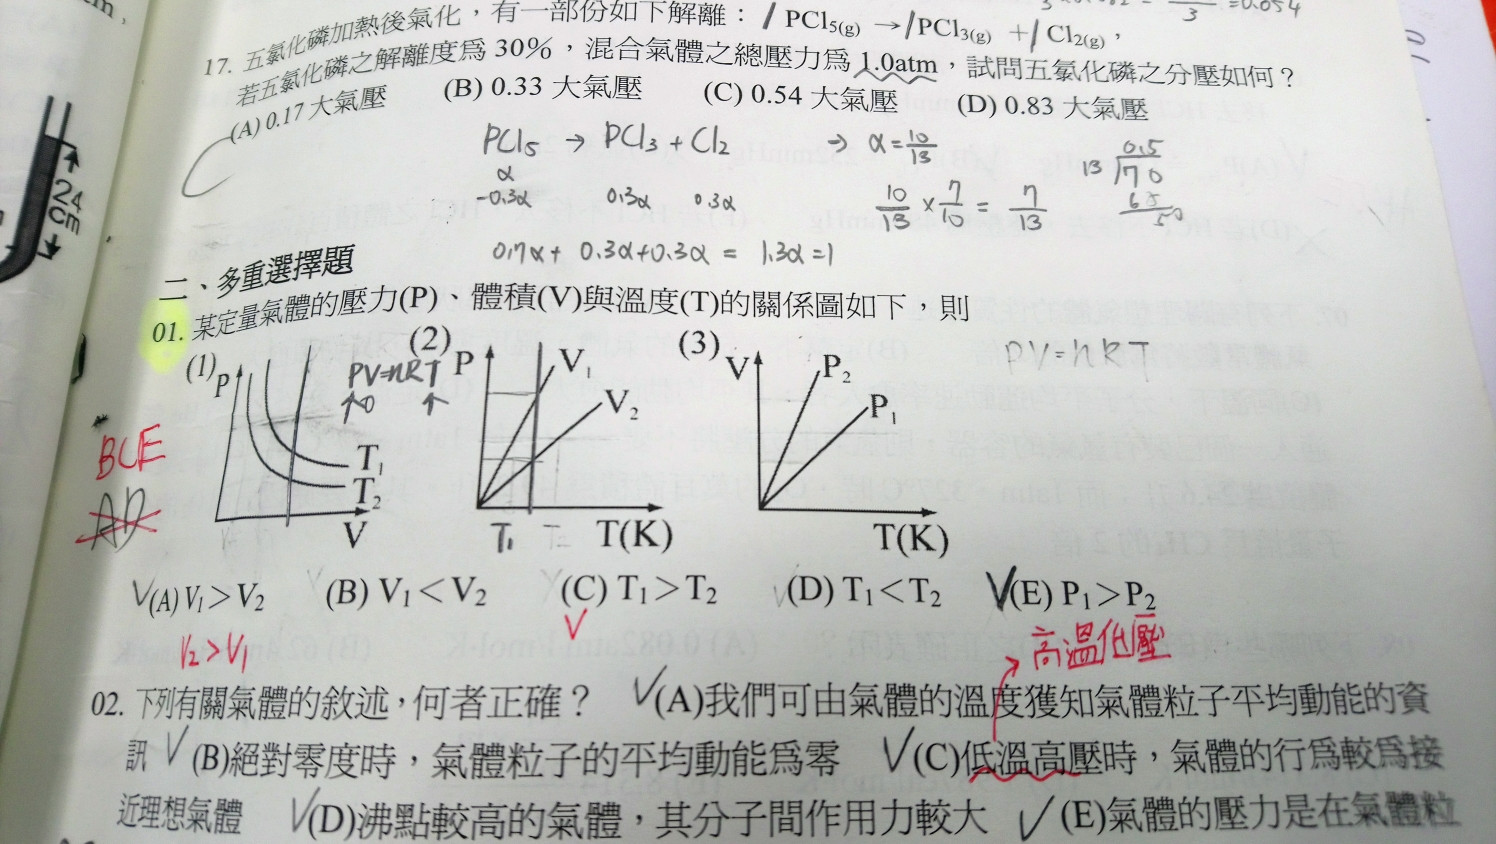 17. 五氯化磷加熱後氣化，有一部份如下解離：1 PCl5(g) →1PCl3(g) +1 Cl2(g)，
若五氯化磷之解離度爲 30%，混合氣體之總壓力爲 1.0atm，試問五氯化磷之分壓如何？
(A) 0.17 大氣壓 (B) 0.33 大氣壓 (C) 0.54 大氣壓 (D) 0.83 大氣壓
C
PCl5 → PCl3 + Cl2 → α = 10/13
α
-0.3α 0.3α 0.3α 10/13 × 7/10 = 7/13
0.7α + 0.3α+0.3α = 1.3α = 1
0.5
13 70
65
50
24
cm
二、多重選擇題
01. 某定量氣體的壓力(P)、體積(V)與溫度(T)的關係圖如下，則
(1) P T1 T2 V
PV=nRT
(2) P V1 V2 T(K)
T1
(3) V P2 P1 T(K)
PV=nRT
BCE
AD
V(A) V1＞V2 (B) V1＜V2 (C) T1＞T2 (D) T1＜T2 V(E) P1＞P2
V2>V1 V
高溫低壓
02. 下列有關氣體的敘述，何者正確？ V(A)我們可由氣體的溫度獲知氣體粒子平均動能的資
訊 V (B)絕對零度時，氣體粒子的平均動能爲零 V(C)低溫高壓時，氣體的行爲較爲接
近理想氣體 V(D)沸點較高的氣體，其分子間作用力較大 V (E)氣體的壓力是在氣體粒